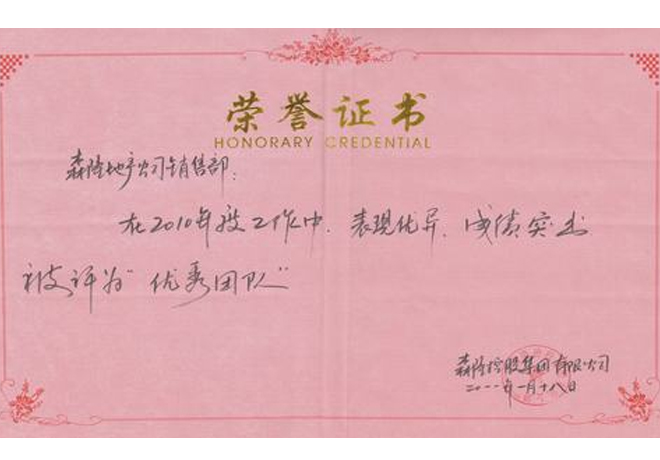 荣誉证书
HONORARY CREDENTIAL
森隆地产公司销售部:
在2010年度工作中,表现优异、成绩突出
被评为"优秀团队"
森隆控股集团有限公司
二〇一一年一月十八日